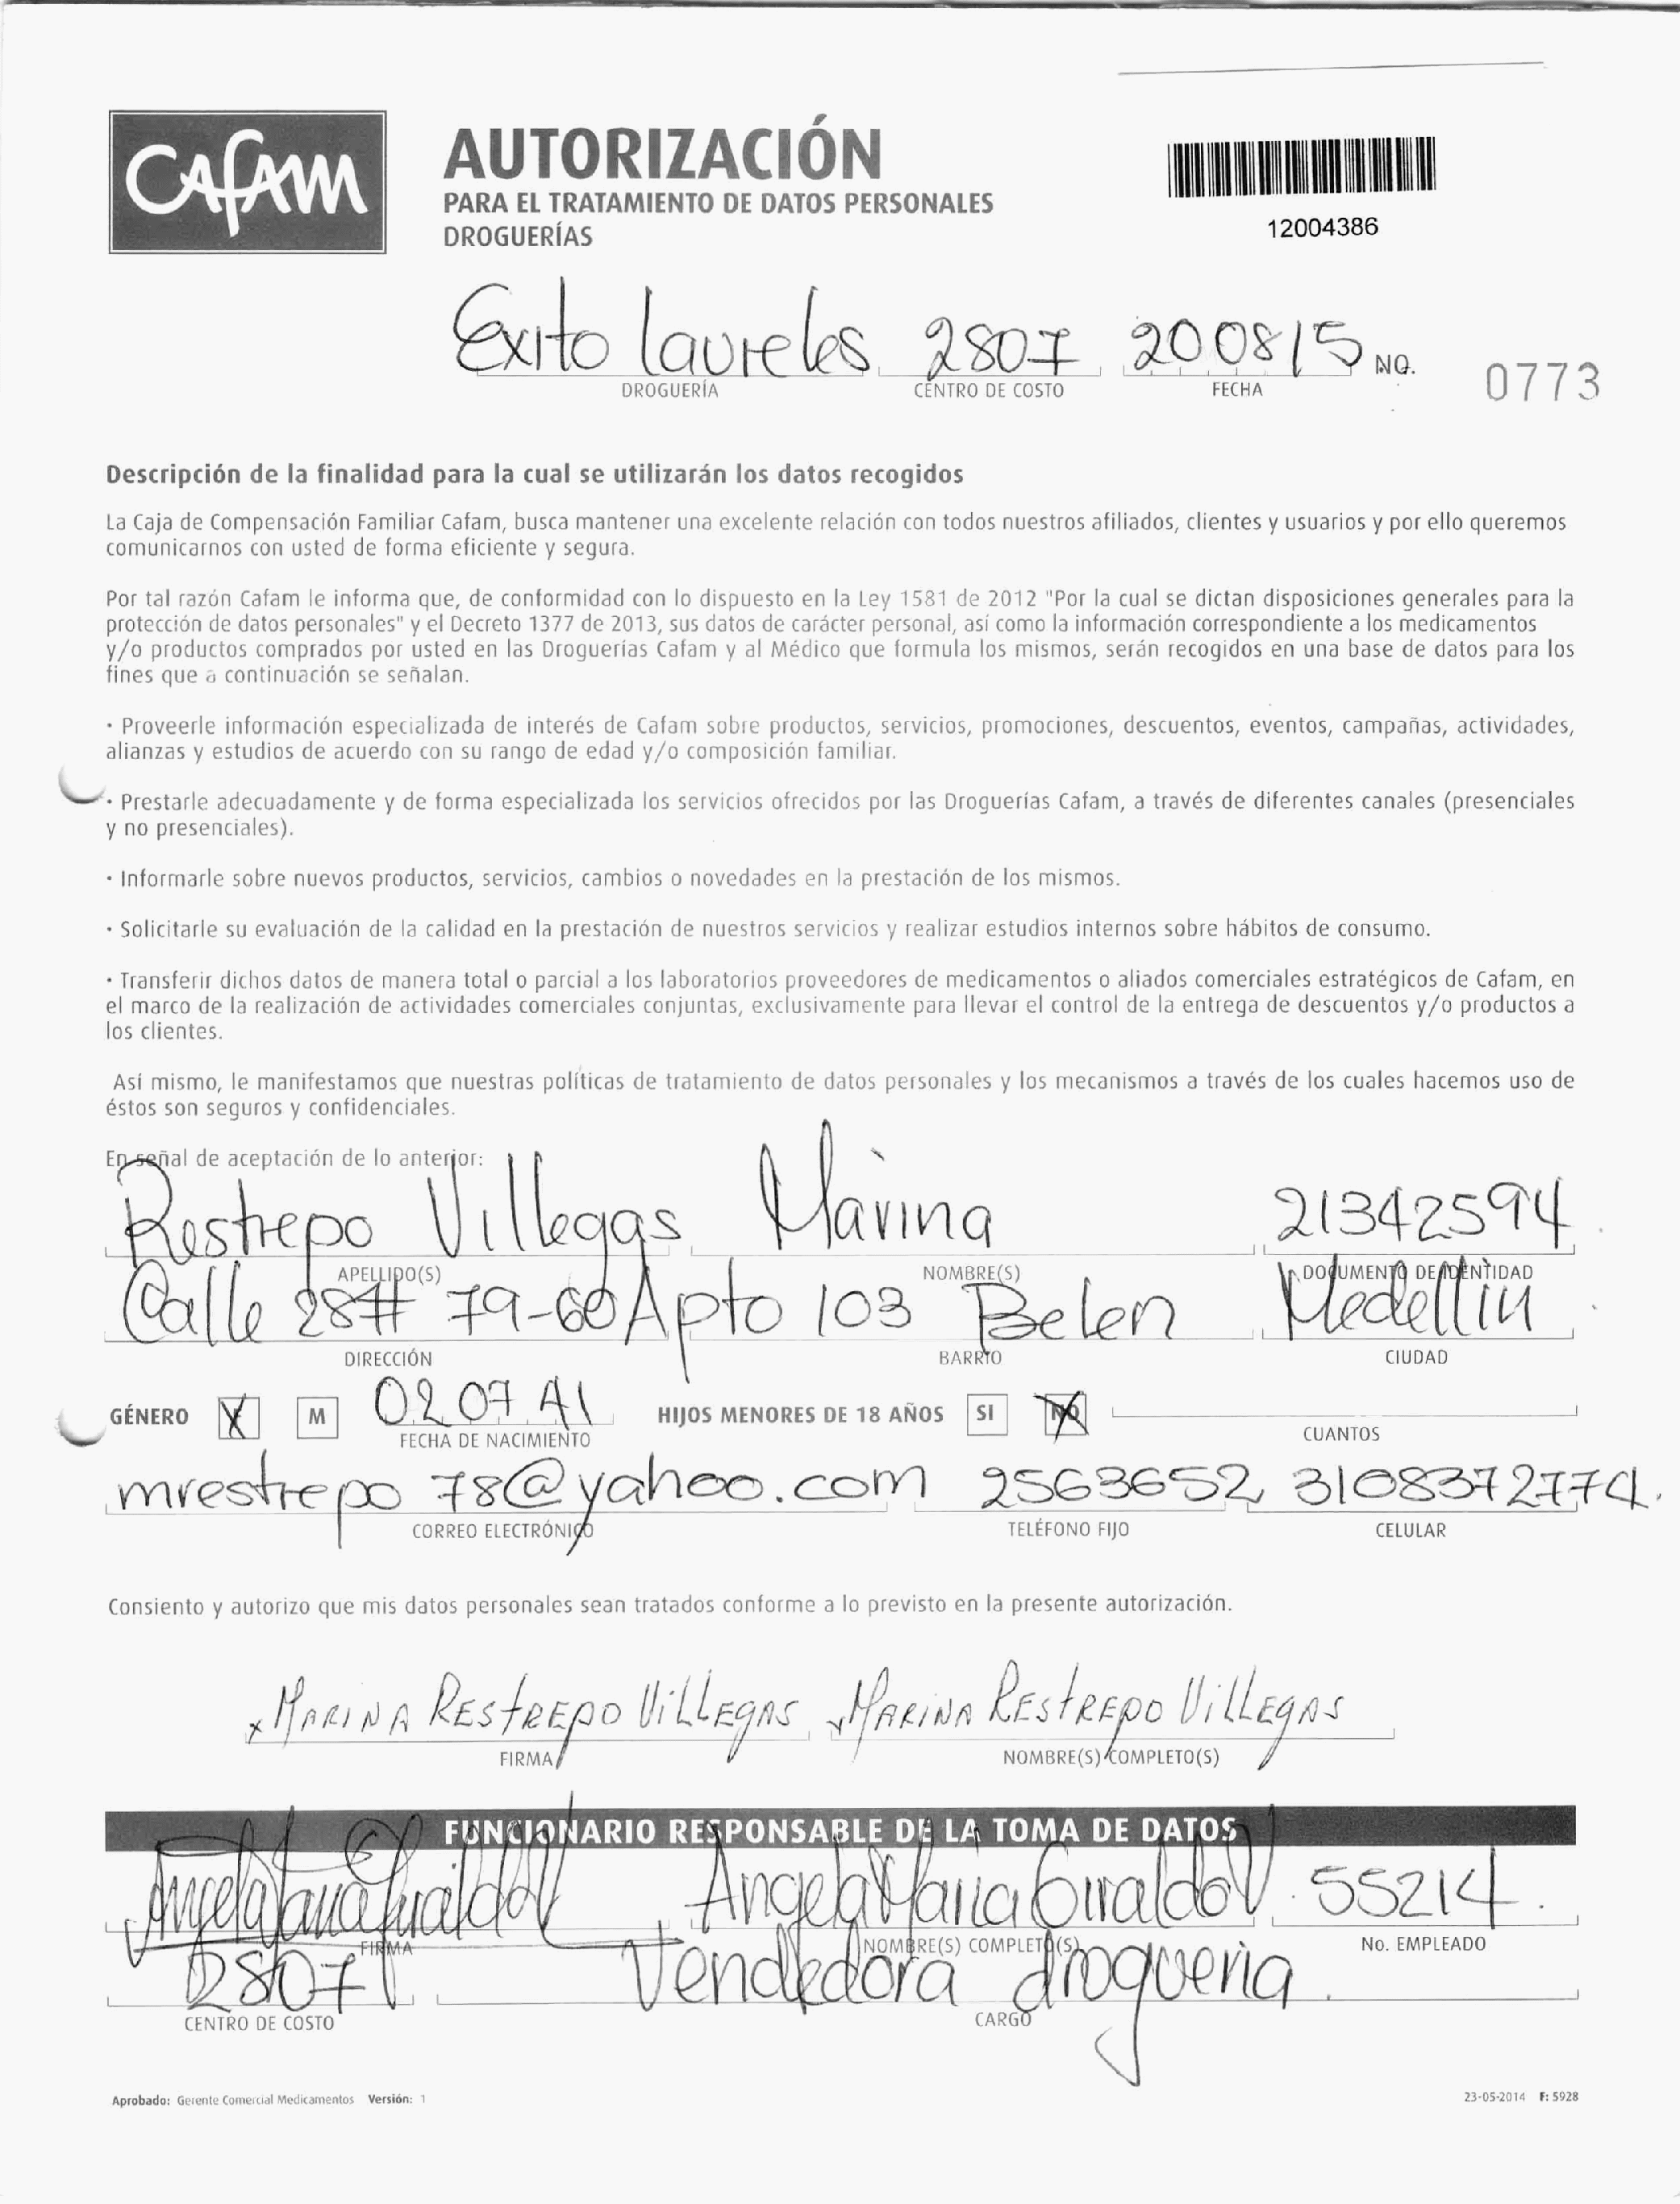 CAFAM
AUTORIZACIÓN
PARA EL TRATAMIENTO DE DATOS PERSONALES
DROGUERÍAS
12004386
Exito laureles 2807 200815 NO. 0773
DROGUERÍA CENTRO DE COSTO FECHA
Descripción de la finalidad para la cual se utilizarán los datos recogidos
La Caja de Compensación Familiar Cafam, busca mantener una excelente relación con todos nuestros afiliados, clientes y usuarios y por ello queremos
comunicarnos con usted de forma eficiente y segura.
Por tal razón Cafam le informa que, de conformidad con lo dispuesto en la Ley 1581 de 2012 "Por la cual se dictan disposiciones generales para la
protección de datos personales" y el Decreto 1377 de 2013, sus datos de carácter personal, así como la información correspondiente a los medicamentos
y/o productos comprados por usted en las Droguerías Cafam y al Médico que formula los mismos, serán recogidos en una base de datos para los
fines que a continuación se señalan.
· Proveerle información especializada de interés de Cafam sobre productos, servicios, promociones, descuentos, eventos, campañas, actividades,
alianzas y estudios de acuerdo con su rango de edad y/o composición familiar.
· Prestarle adecuadamente y de forma especializada los servicios ofrecidos por las Droguerías Cafam, a través de diferentes canales (presenciales
y no presenciales).
· Informarle sobre nuevos productos, servicios, cambios o novedades en la prestación de los mismos.
· Solicitarle su evaluación de la calidad en la prestación de nuestros servicios y realizar estudios internos sobre hábitos de consumo.
· Transferir dichos datos de manera total o parcial a los laboratorios proveedores de medicamentos o aliados comerciales estratégicos de Cafam, en
el marco de la realización de actividades comerciales conjuntas, exclusivamente para llevar el control de la entrega de descuentos y/o productos a
los clientes.
Así mismo, le manifestamos que nuestras políticas de tratamiento de datos personales y los mecanismos a través de los cuales hacemos uso de
éstos son seguros y confidenciales.
En señal de aceptación de lo anterior:
Restrepo Villegas Marina 21342594
APELLIDO(S) NOMBRE(S) DOCUMENTO DE IDENTIDAD
Calle 28# 79-60 Apto 103 Belen Medellin
DIRECCIÓN BARRIO CIUDAD
GÉNERO X M 02 07 41 HIJOS MENORES DE 18 AÑOS SI NO
FECHA DE NACIMIENTO CUANTOS
mrestrepo 78@yahoo.com 2563652 3108372774.
CORREO ELECTRÓNICO TELÉFONO FIJO CELULAR
Consiento y autorizo que mis datos personales sean tratados conforme a lo previsto en la presente autorización.
x MARINA REStREpO VilLEgAS x MARINA REStREpO VilLEgAS
FIRMA NOMBRE(S) COMPLETO(S)
FUNCIONARIO RESPONSABLE DE LA TOMA DE DATOS
Angela Maria Giraldo V Angela Maria Giraldo V. 55214.
FIRMA NOMBRE(S) COMPLETO(S) No. EMPLEADO
2807 Vendedora drogueria.
CENTRO DE COSTO CARGO
Aprobado: Gerente Comercial Medicamentos Versión: 1 23-05-2014 F: 5928